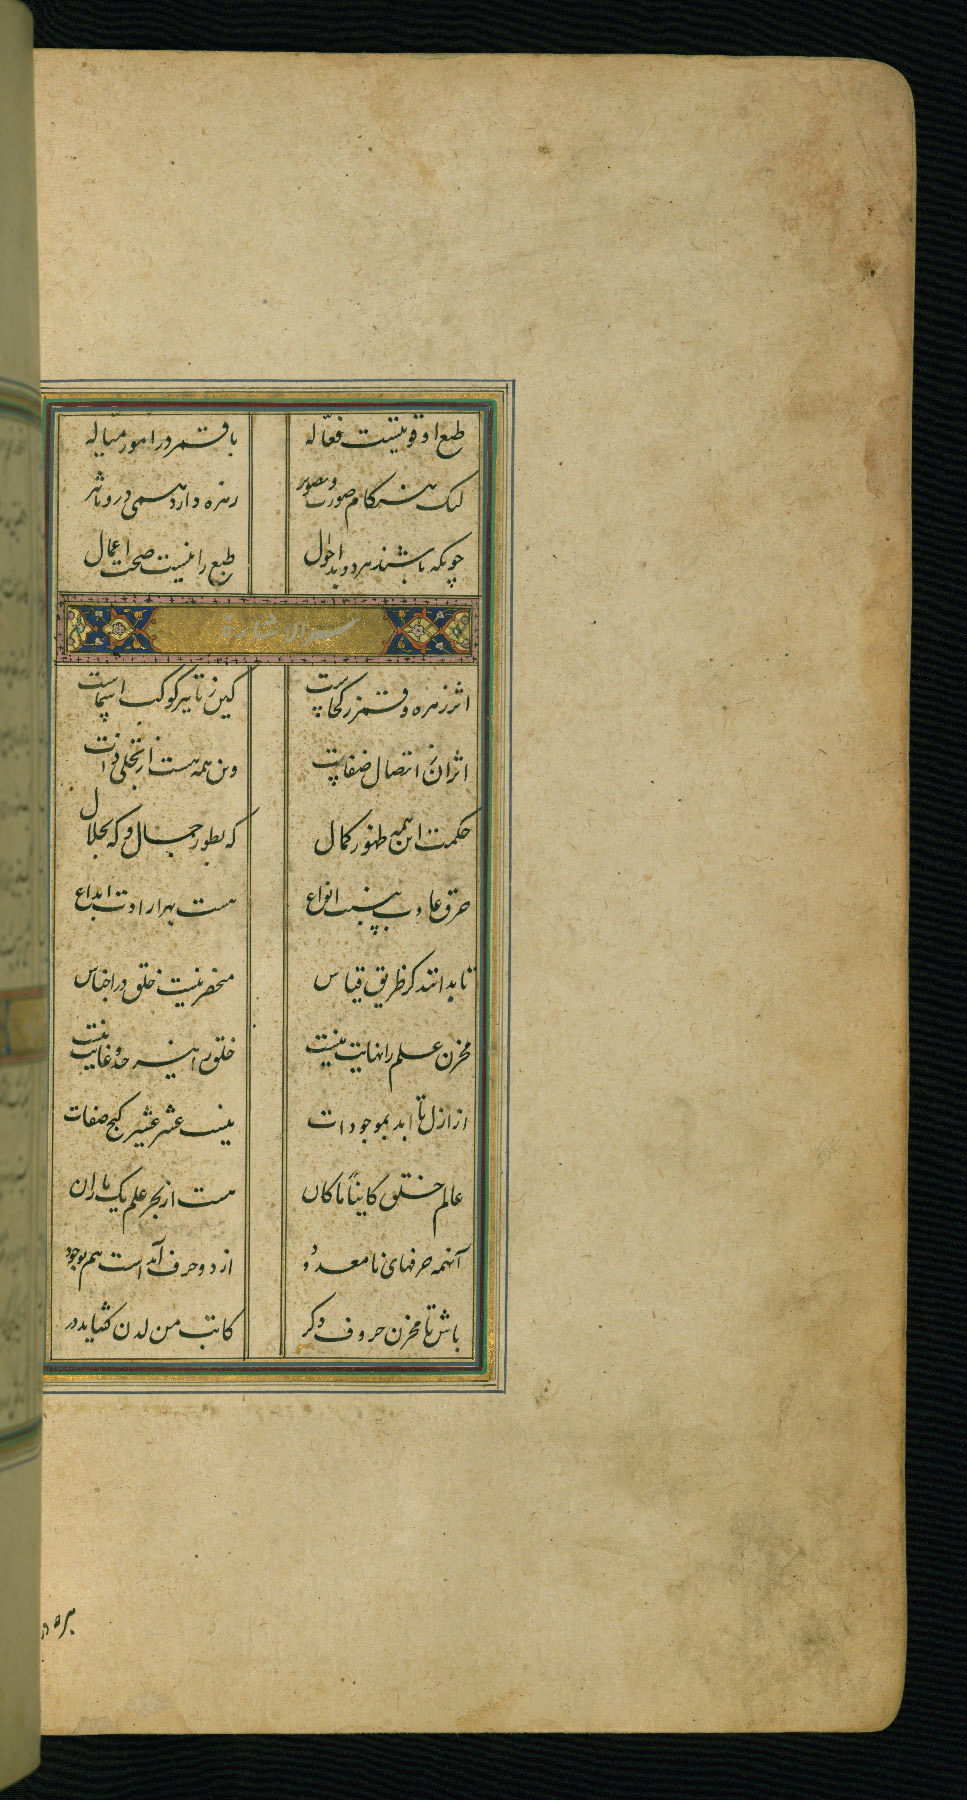 طبع او قوتیست فعاله با قمر در امور میاله
لیک هنگام صورت و تصویر زهره دارد همی درو تاثیر
چونکه باشند هر دو بد احوال طبع را نیست صحت اعمال
سر الاشارة
اثر زهره و قمز ز کجاست کین ز تاثیر کوکب اسماست
اثر آن ز اتصال صفات وین همه هست از تجلی ذات
حکمت این همه ظهور کمال که بطور جمال و که بجلال
خرق عادت انواع هست بهر ارادت ابداع
تا بدانند کز طریق قیاس منحصر نیست خلق در اجناس
مخزن علم را نهایت نیست خلق را نیز حد و غایت نیست
از ازل تا ابد بموجودات نیست عشر عشیر کنج صفات
عالم خلق کاینا ما کان هست از بحر علم یک باران
آنهمه حرفهای نامعدود از دو حرف آمد است هم بوجود
باش تا مخزن حروف دکر کاتب من لدن کشاید در